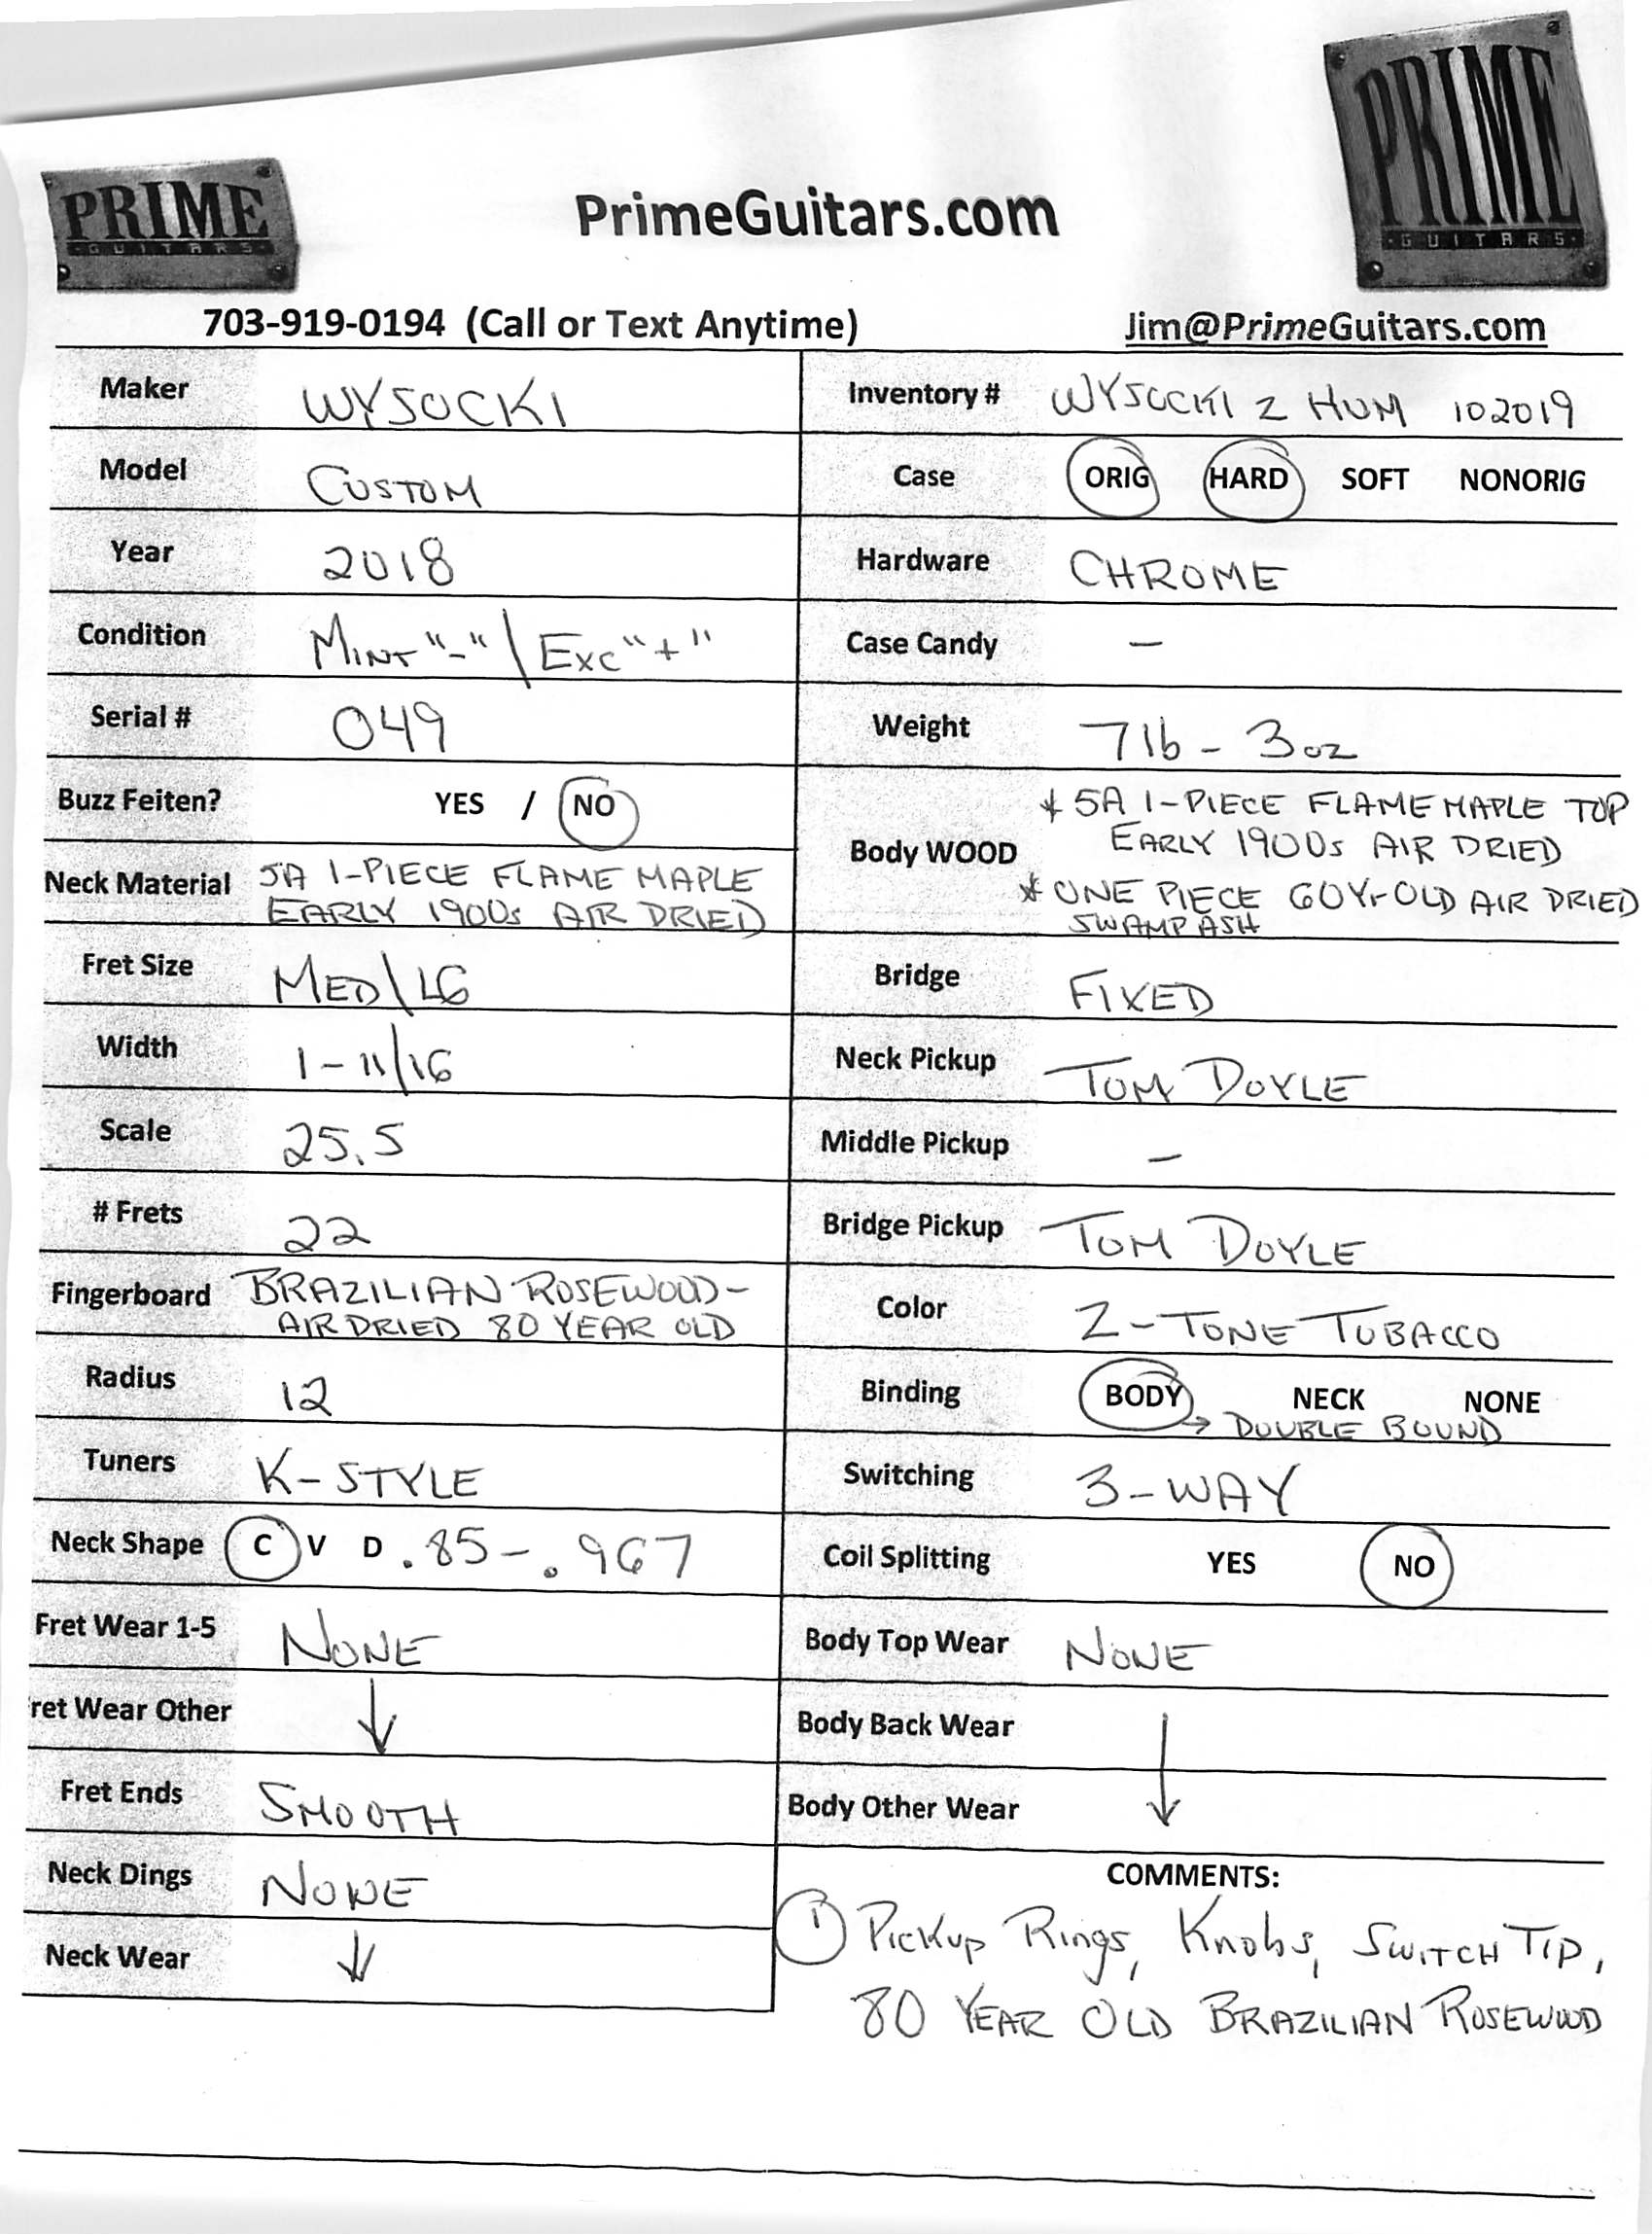 PRIME
GUITARS
PrimeGuitars.com
PRIME
GUITARS
703-919-0194 (Call or Text Anytime)
Jim@PrimeGuitars.com
Maker WYSOCKI
Model CUSTOM
Year 2018
Condition MINT "-" / EXC "+"
Serial # 049
Buzz Feiten? YES / NO
Neck Material 5A 1-PIECE FLAME MAPLE
EARLY 1900s AIR DRIED
Fret Size MED\LG
Width 1-11/16
Scale 25.5
# Frets 22
Fingerboard BRAZILIAN ROSEWOOD-
AIR DRIED 80 YEAR OLD
Radius 12
Tuners K-STYLE
Neck Shape C V D .85-.967
Fret Wear 1-5 NONE
ret Wear Other ↓
Fret Ends SMOOTH
Neck Dings NONE
Neck Wear ↓
Inventory # WYSOCKI 2 HUM 102019
Case ORIG HARD SOFT NONORIG
Hardware CHROME
Case Candy -
Weight 7lb - 3oz
Body WOOD * 5A 1-PIECE FLAME MAPLE TOP
EARLY 1900s AIR DRIED
* ONE PIECE 60Yr-OLD AIR DRIED
SWAMP ASH
Bridge FIXED
Neck Pickup TOM DOYLE
Middle Pickup -
Bridge Pickup TOM DOYLE
Color 2-TONE TOBACCO
Binding BODY NECK NONE
→ DOUBLE BOUND
Switching 3-WAY
Coil Splitting YES NO
Body Top Wear NONE
Body Back Wear
Body Other Wear ↓
COMMENTS:
1 Pickup Rings, Knobs, SWITCH TIP,
80 YEAR OLD BRAZILIAN ROSEWOOD